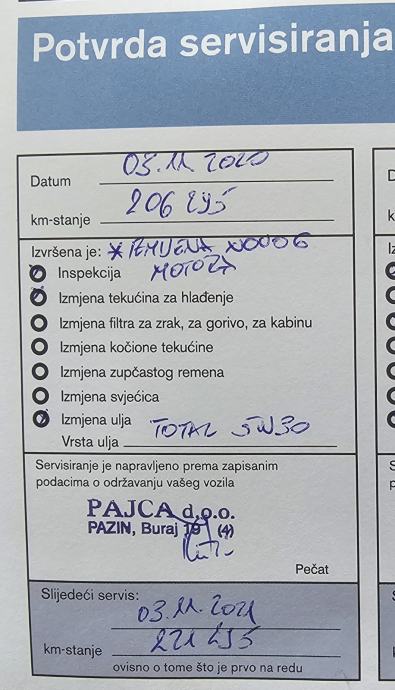 Potvrda servisiranja
Datum 03.11.2020
km-stanje 206 295
Izvršena je: * IZMJENA NOVOG
Inspekcija MOTORA
Izmjena tekućina za hlađenje
Izmjena filtra za zrak, za gorivo, za kabinu
Izmjena kočione tekućine
Izmjena zupčastog remena
Izmjena svjećica
Izmjena ulja
Vrsta ulja TOTAL 5W30
Servisiranje je napravljeno prema zapisanim
podacima o održavanju vašeg vozila
PAJCA d.o.o.
PAZIN, Buraj (4)
Pečat
Slijedeći servis:
03.11.2021
km-stanje 221 295
ovisno o tome što je prvo na redu